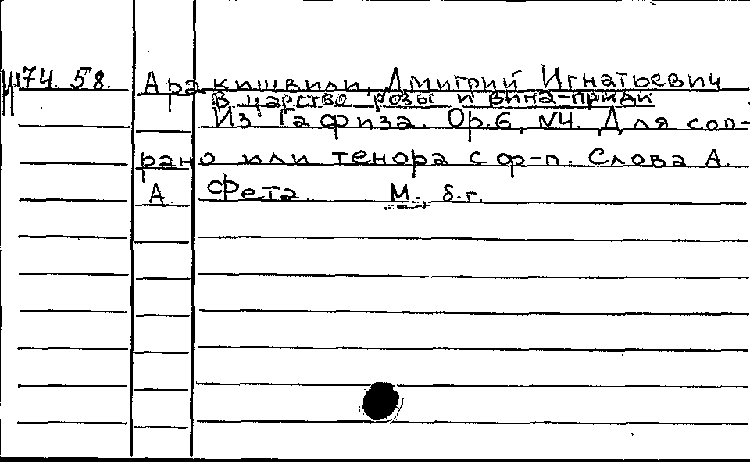 И74.58. Аракишвили, Дмитрий Игнатьевич
В царство розы и вина-приди
Из Гафиза. Op.6, N4. Для соп-
рано или тенора с ф-п. Слова А.
А. Фета. М., б.г.